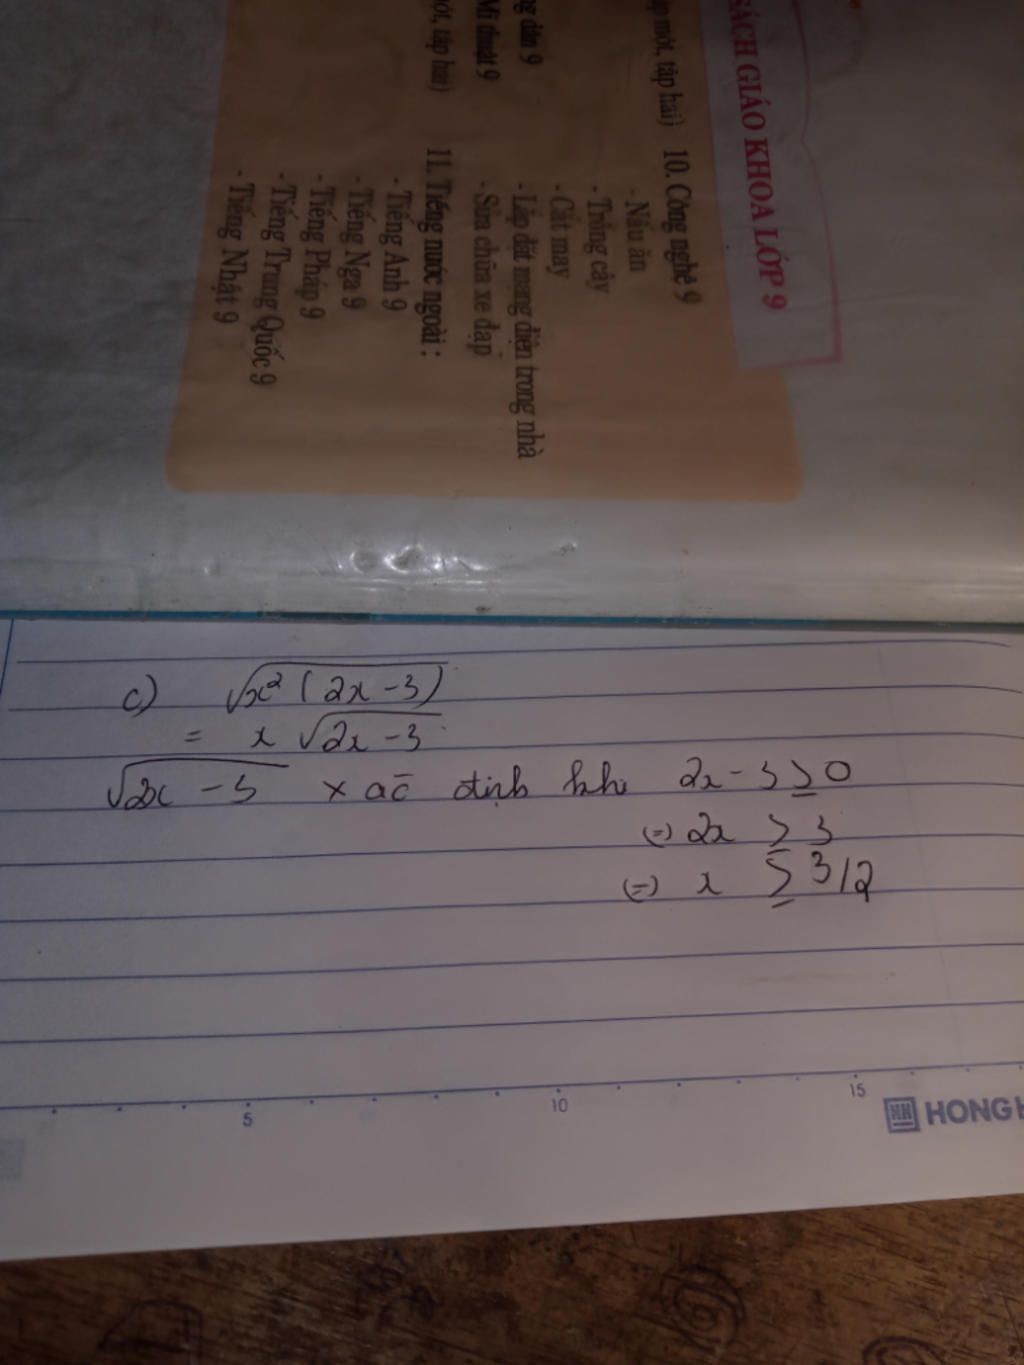 SÁCH GIÁO KHOA LỚP 9
một, tập hai)
10. Công nghệ 9
- Nấu ăn
- Trồng cây
- Cắt may
- Lắp đặt mạng điện trong nhà
- Sửa chữa xe đạp
11. Tiếng nước ngoài :
- Tiếng Anh 9
- Tiếng Nga 9
- Tiếng Pháp 9
- Tiếng Trung Quốc 9
- Tiếng Nhật 9
dân 9
Mĩ thuật 9
tập hai)
c) √x² (2x - 3)
= x √2x - 3
√2x - 3 xác định khi 2x - 3 ≥ 0
(=) 2x ≥ 3
(=) x ≥ 3/2
5 10 15
HONG H